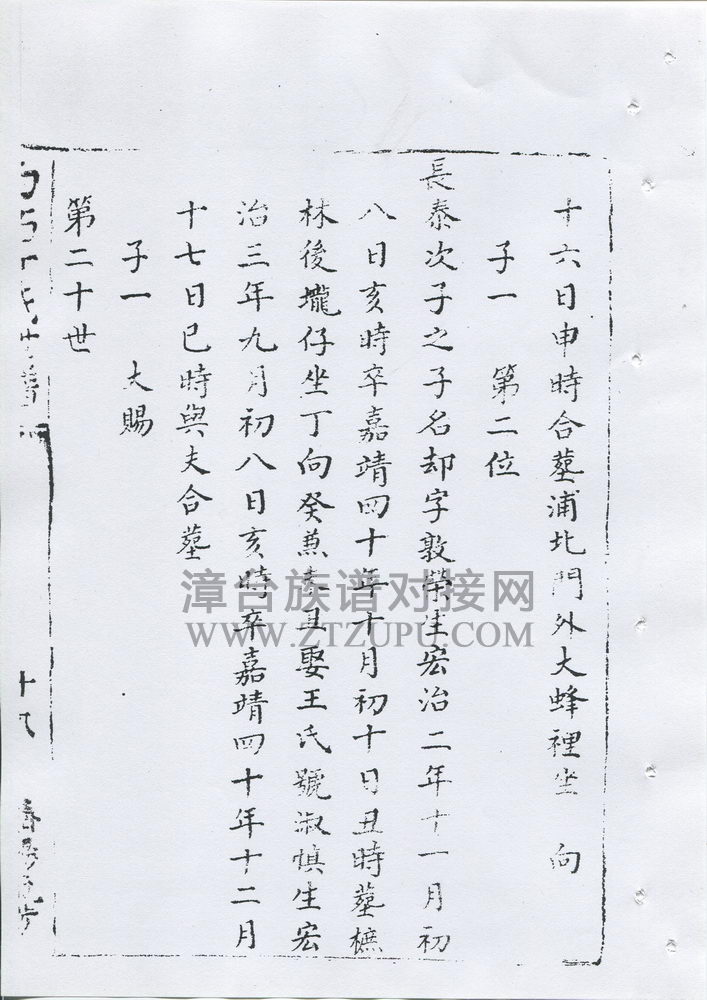 十六日申時合墓浦北門外大蜂裡坐 向
子一 第二位
長泰次子之子名却字敦榮生宏治二年十一月初
八日亥時卒嘉靖四十年十月初十日丑時墓樜
林後壠仔坐丁向癸兼 丑娶王氏號淑慎生宏
治三年九月初八日亥時卒嘉靖四十年十二月
十七日巳時與夫合墓
子一 大賜
第二十世
漳台族谱对接网
WWW.ZTZUPU.COM